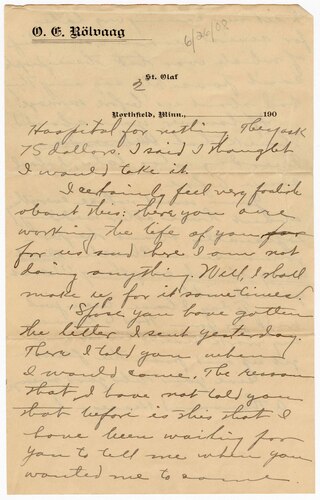 O. E. Rölvaag
6/26/08
St. Olaf
2
Northfield, Minn., 190
Hospital for nothing. They ask
75 dollars. I said I thought
I would take it.
I certainly feel very foolish
about this: there you are
working the life of you
for us and here I am not
doing anything. Well, I shall
make up for it sometimes.
'Spose you have gotten
the letter I sent yesterday.
There I told you when
I would come. The reason
that I have not told you
that before is this that I
have been waiting for
you to tell me when you
wanted me to come.